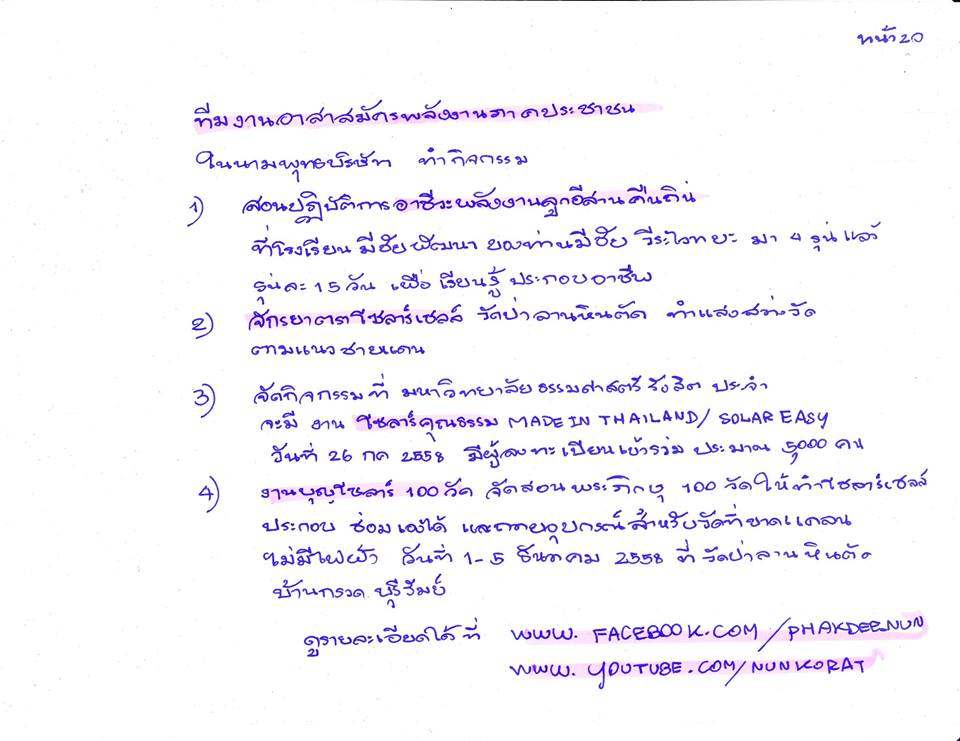 หน้า 20
ทีมงานอาสาสมัครพลังงานภาคประชาชน
ในนามพุทธบริษัท ทำกิจกรรม
1) สอนปฏิบัติการอาชีวะพลังงานลูกอีสานคืนถิ่น
ที่โรงเรียน มีชัยพัฒนา ของท่านมีชัย วีระไวทยะ มา 4 รุ่นแล้ว
รุ่นละ 15 วัน เพื่อเรียนรู้ ประกอบอาชีพ
2) จักรยาตราโซลาร์เซลล์ วัดป่าลานหินตัด ทำแสงสว่างวัด
ตามแนวชายแดน
3) จัดกิจกรรมที่ มหาวิทยาลัยธรรมศาสตร์รังสิต ประจำ
จะมี งาน โซลาร์คุณธรรม MADE IN THAILAND/ SOLAR EASY
วันที่ 26 กค 2558 มีผู้ลงทะเบียนเข้าร่วม ประมาณ 5,000 คน
4) งานบุญโซลาร์ 100 วัด จัดสอนพระภิกษุ 100 วัดให้ทำโซลาร์เซลล์
ประกอบ ซ่อมเองได้ และถวายอุปกรณ์สำหรับวัดที่ขาดแคลน
ไม่มีไฟฟ้า วันที่ 1-5 ธันวาคม 2558 ที่วัดป่าลานหินตัด
บ้านกรวด บุรีรัมย์
ดูรายละเอียดได้ที่ WWW. FACEBOOK.COM /PHAKDEE.NUN
WWW. YOUTUBE.COM/NUNKORAT